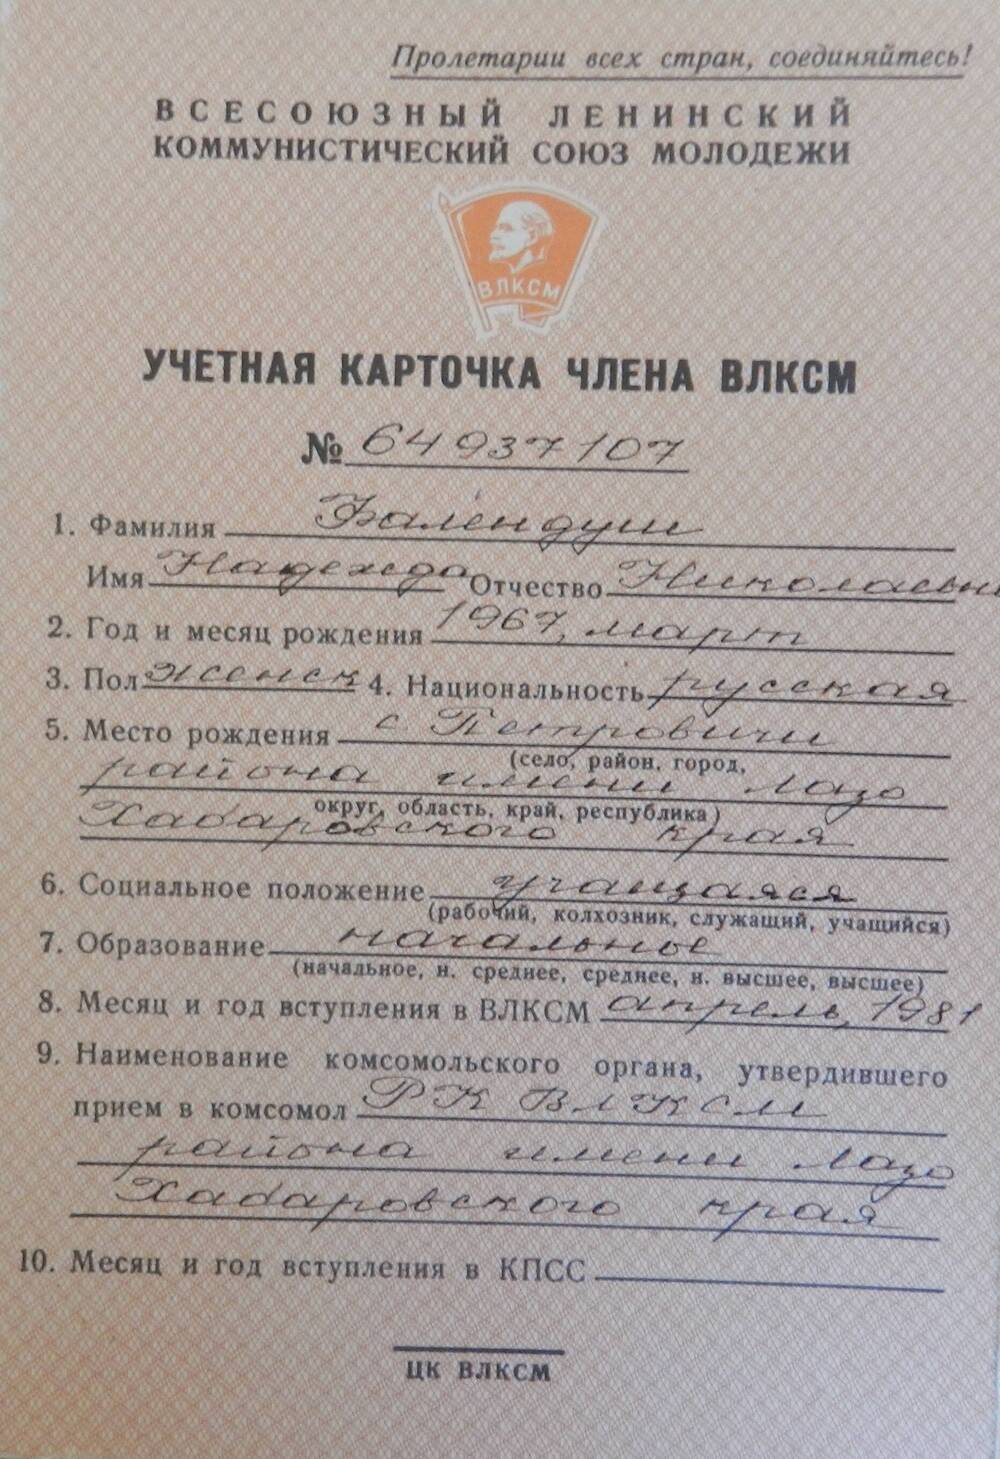 Пролетарии всех стран, соединяйтесь!
ВСЕСОЮЗНЫЙ ЛЕНИНСКИЙ
КОММУНИСТИЧЕСКИЙ СОЮЗ МОЛОДЕЖИ
ВЛКСМ
УЧЕТНАЯ КАРТОЧКА ЧЛЕНА ВЛКСМ
№ 64937107
1. Фамилия Балендуш
Имя Надежда Отчество Николаевн
2. Год и месяц рождения 1967, март
3. Пол женск 4. Национальность русская
5. Место рождения с. Петровичи
(село, район, город,
района имени Лазо
округ, область, край, республика)
Хабаровского края
6. Социальное положение учащаяся
(рабочий, колхозник, служащий, учащийся)
7. Образование начальное
(начальное, н. среднее, среднее, н. высшее, высшее)
8. Месяц и год вступления в ВЛКСМ апрель, 1981
9. Наименование комсомольского органа, утвердившего
прием в комсомол РК ВЛКСМ
района имени Лазо
Хабаровского края
10. Месяц и год вступления в КПСС
ЦК ВЛКСМ